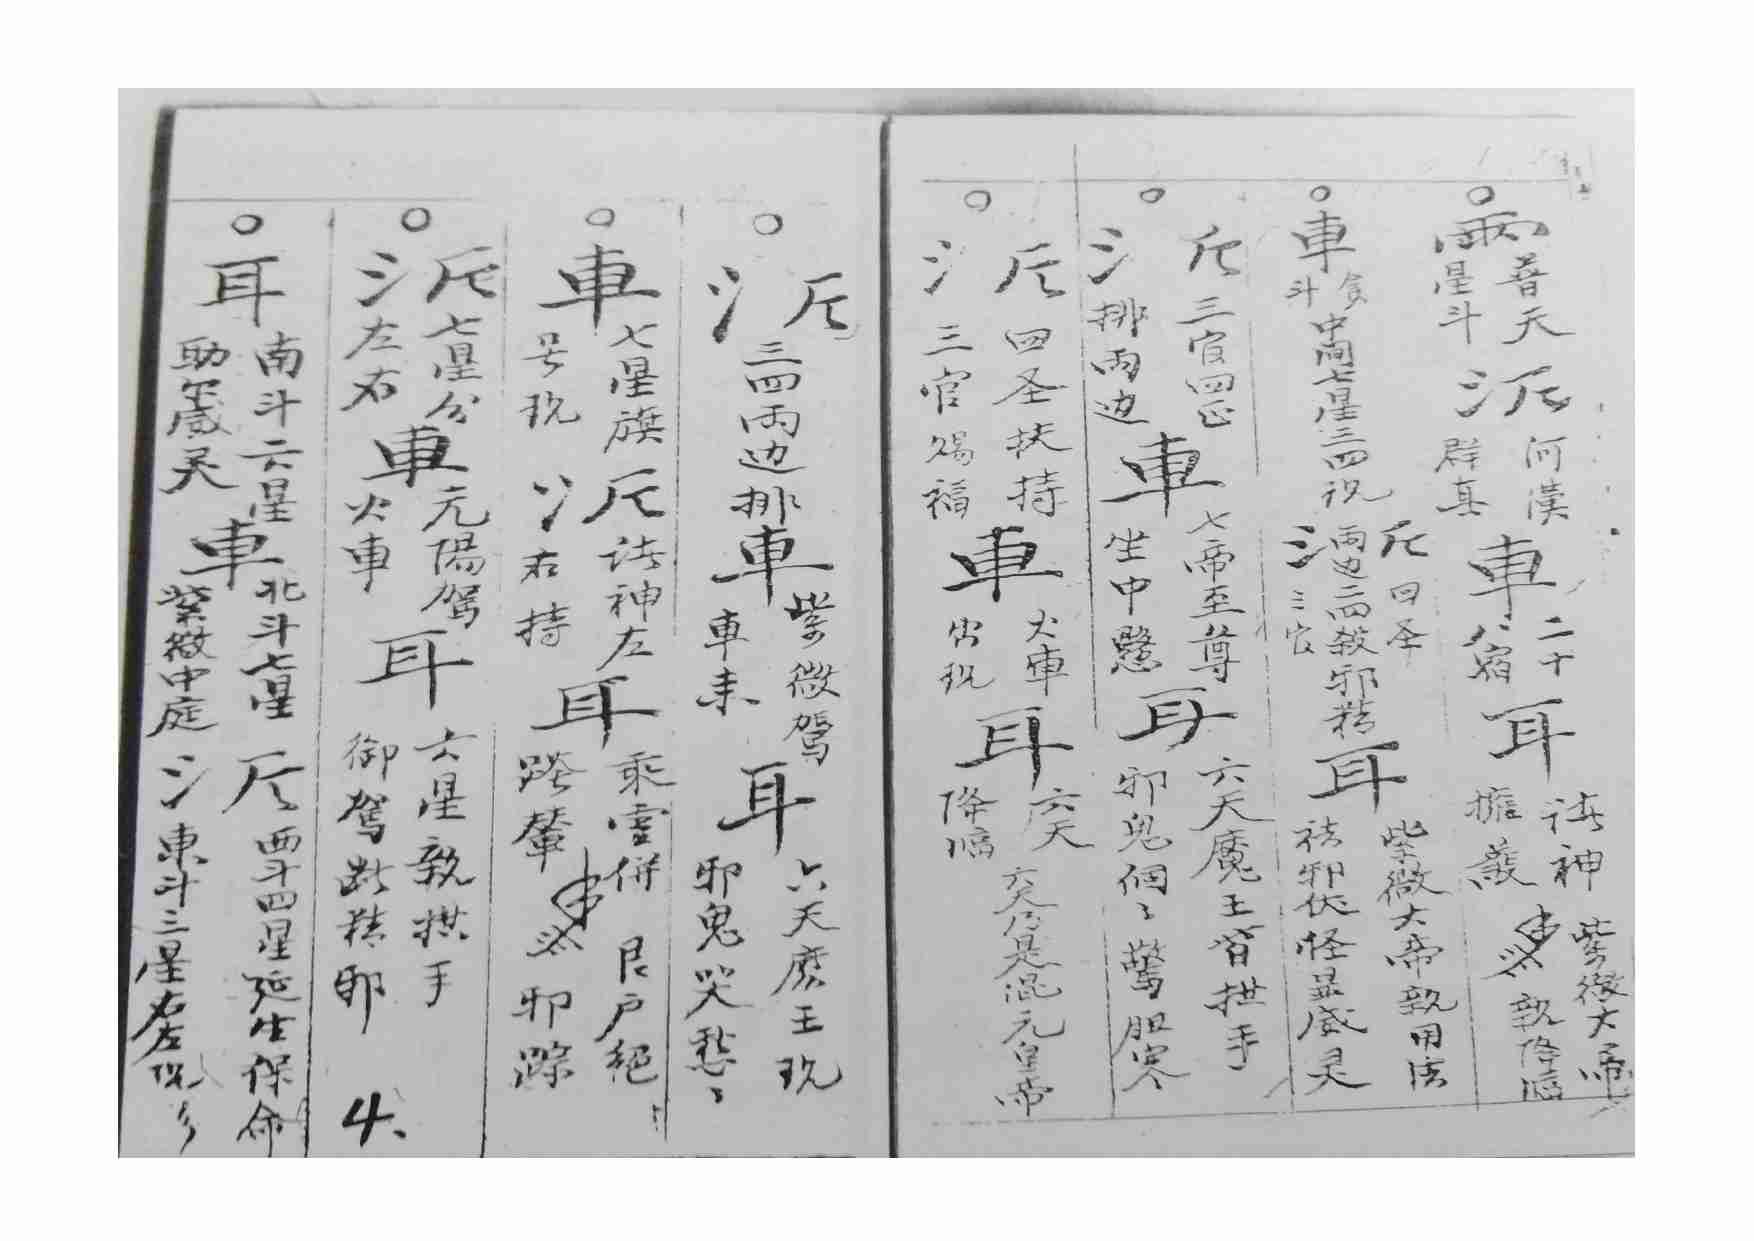 雨 普天星斗 氵斤 河漢群真 車 二十八宿 耳 諸神擁護 紫微大帝 敕降臨
車 貪斗 中間七星三四祝 氵斤 四圣三官 兩边二四殺邪精 耳 紫微大帝親用法 祛邪伏怪显威灵
氵斤 三官四正排兩边 車 七帝至尊坐中懸 耳 六天魔王皆拱手 邪鬼個々驚胆寒
氵斤 四圣扶持 三官赐福 車 火車出现 耳 六天降临 六天乃是混元皇帝
氵斤 三四兩边排 車 紫微駕車来 耳 六天魔王现 邪鬼哭愁々
車 七星旗号现 氵斤 諸神左右持 耳 乘雲併 輦 艮户絕邪踪
氵斤 七星分左右 車 元陽駕火車 耳 六星親拱手 御駕 精邪
4、
耳 南斗六星 助 威灵 車 北斗七星 紫微中庭 氵斤 西斗四星延生保命 東斗三星右左